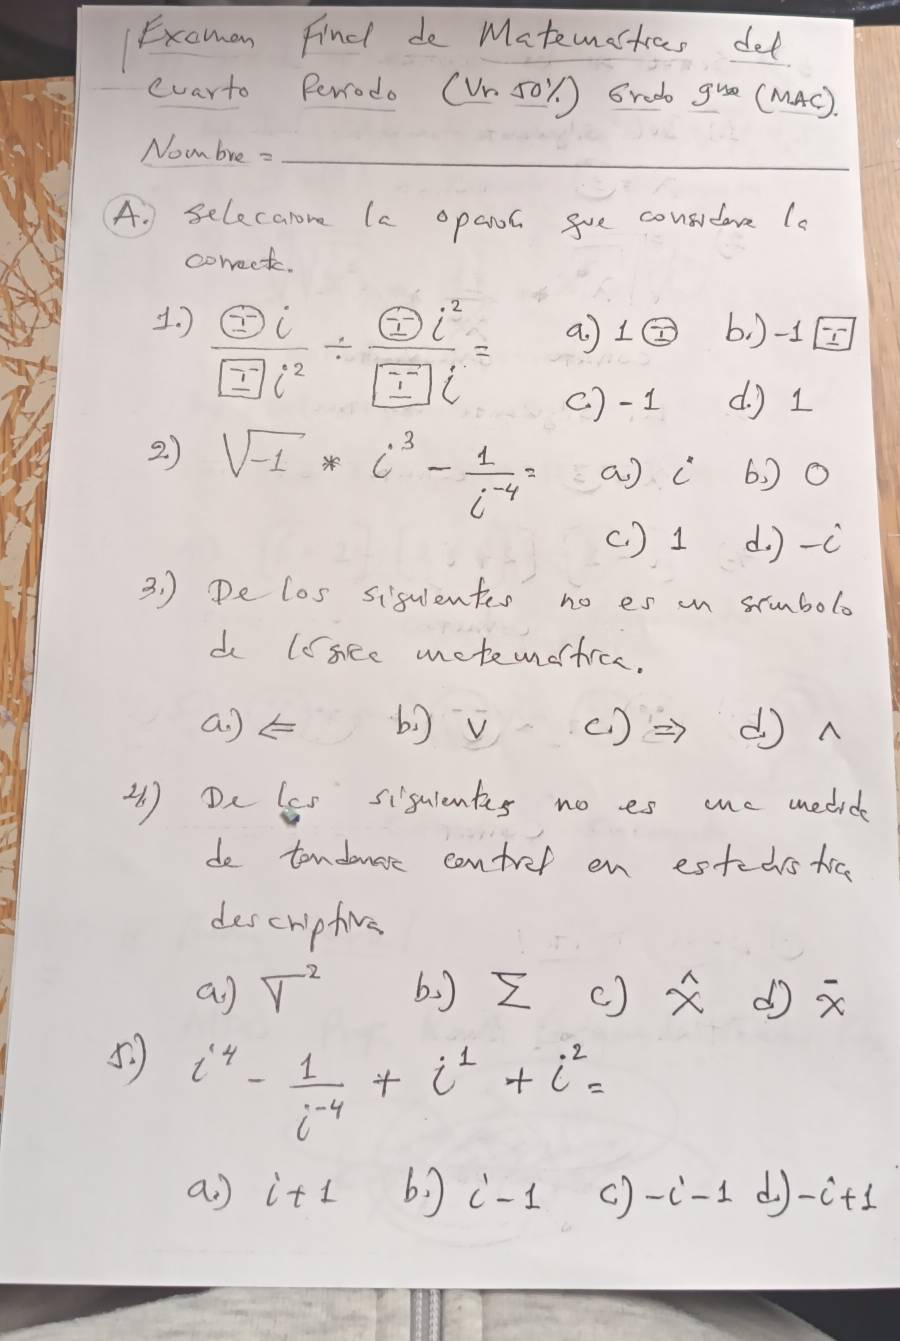 Examen Final de Matemáticas del
Cuarto Periodo (Vr 50%) Grado 9no (MAC).
Nombre = ____________________
A. Seleccione la opción que considere la
correcta.
1.) i / i² ÷ i² / i = a.) 1 b.) -1
c.) -1 d.) 1
2.) √-1 * i³ - 1/i⁻⁴ = a.) i b.) 0
c.) 1 d.) -i
3.) De los siguientes no es un símbolo
de lógica matemática.
a.) ⇐ b.) ∨ c.) ⇒ d.) ∧
4.) De las siguientes no es una medida
de tendencia central en estadística
descriptiva
a.) σ² b.) Σ c.) x̂ d.) x̄
5.) i⁴ - 1/i⁻⁴ + i¹ + i² =
a.) i+1 b.) i-1 c.) -i-1 d.) -i+1